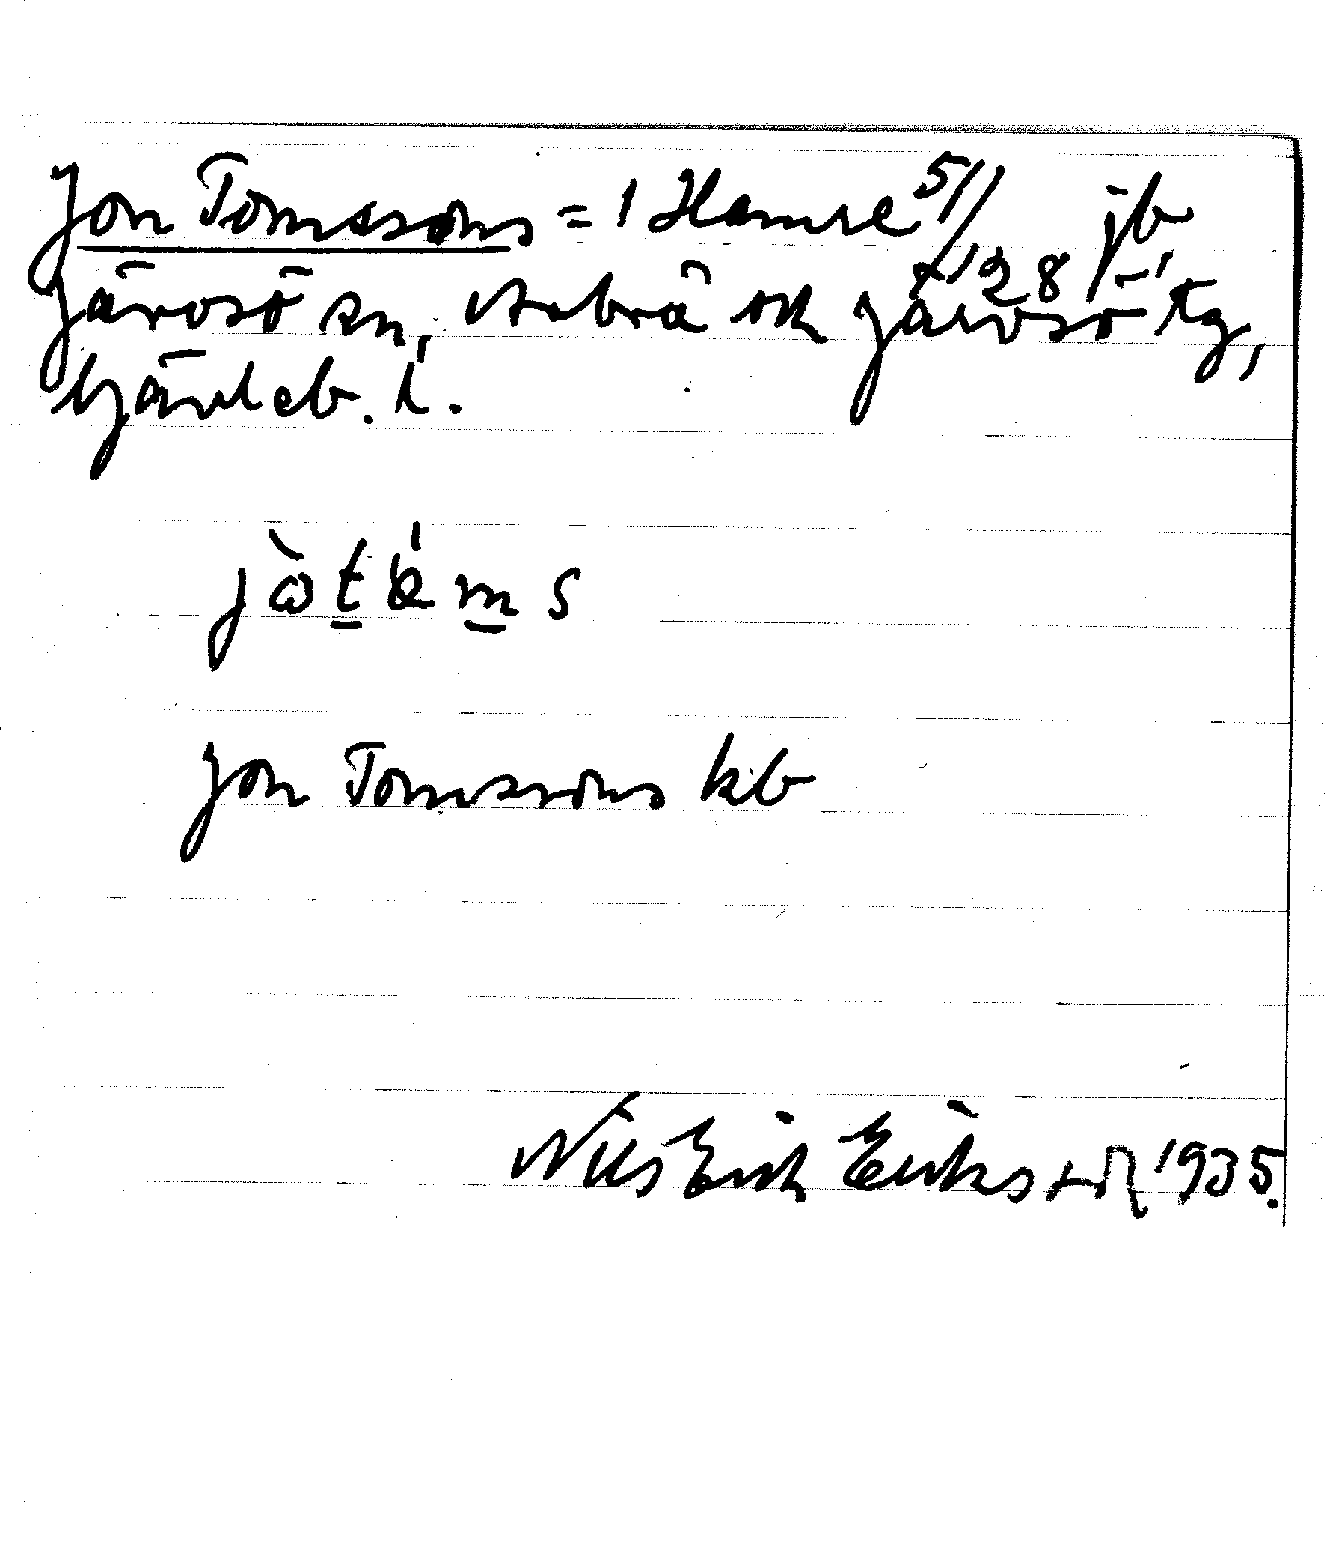 Jon Tomssons = 1 Hamre 5/128 jb
Järvsö sn, Arbrå ock Järvsö tg,
Gävleb. l.
Jon Tomssons kb
Nils Erik Eriksson 1935.